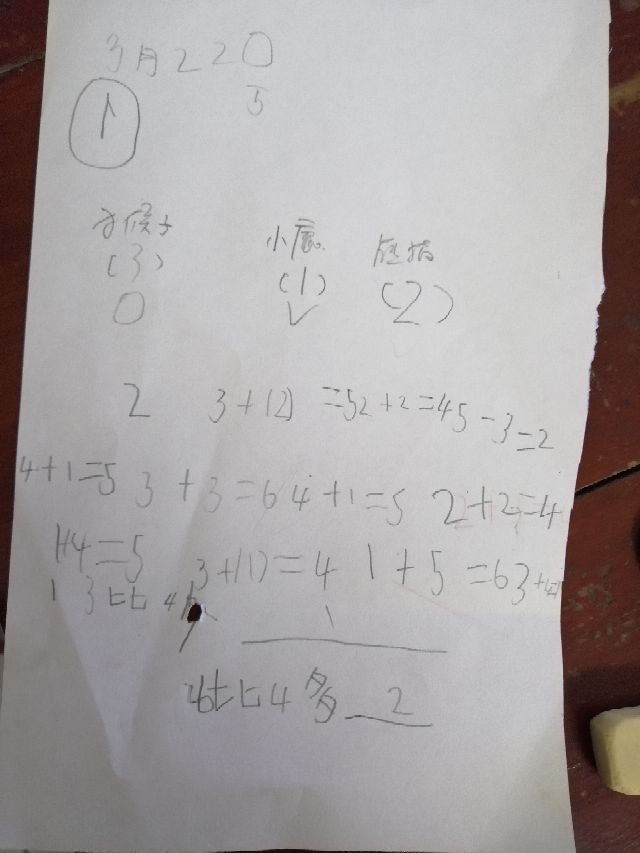 3月22日
5
1
猴子 小鹿
(3) (1) (2)
○ √
2 3+(2)=5 2+2=4 5-3=2
4+1=5 3+3=6 4+1=5 2+2=4
1+4=5 3+(1)=4 1+5=6 3+
1 3比4少 1
6比4多 2